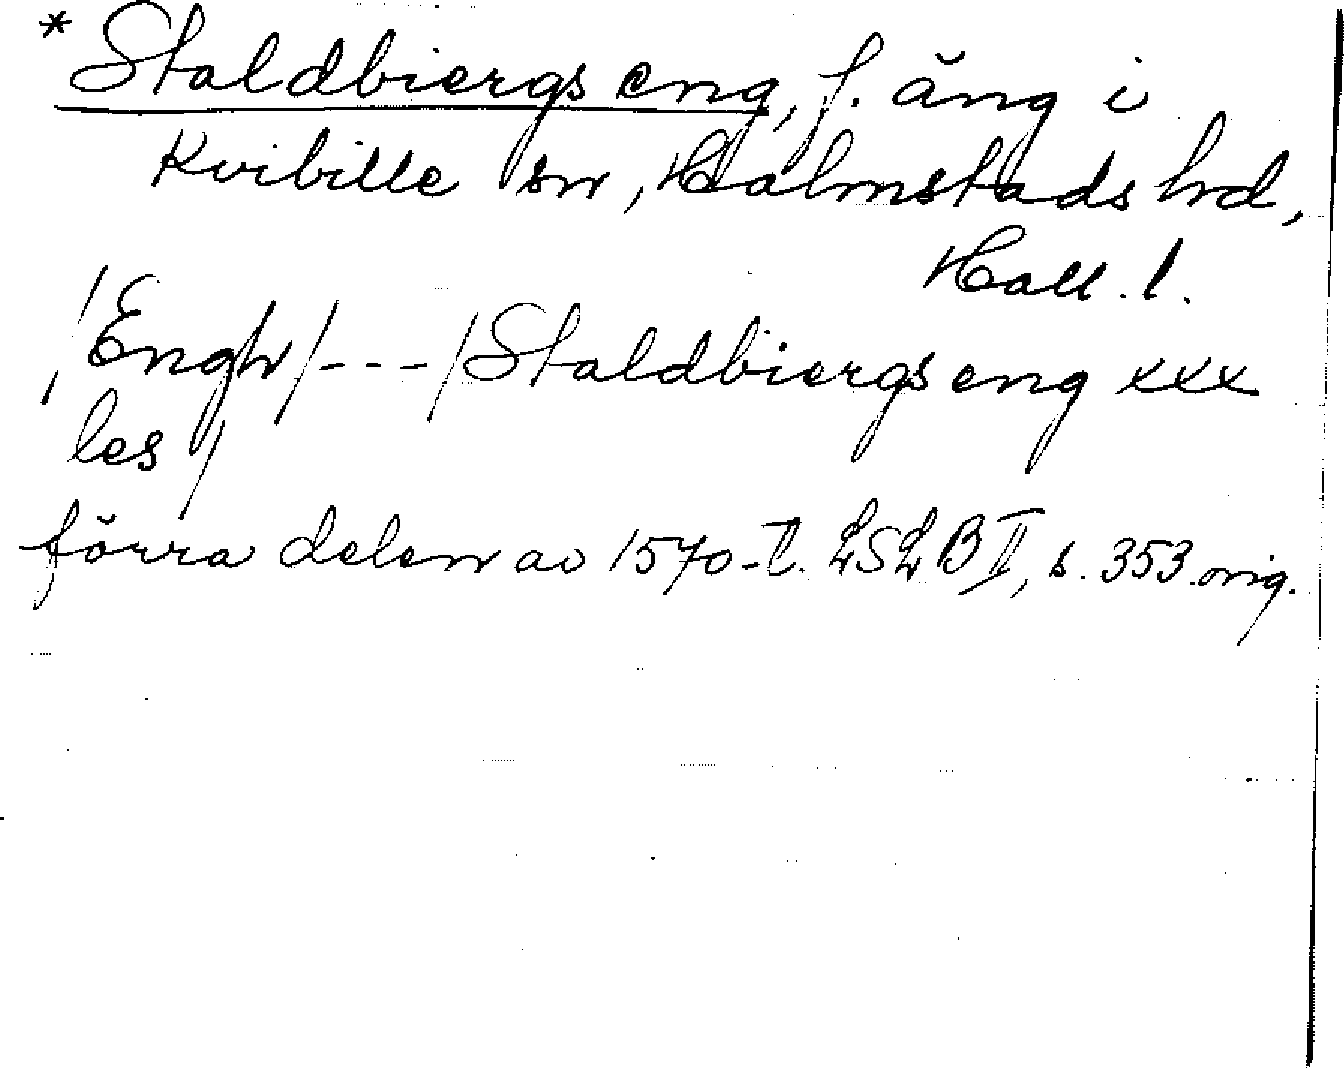 * Staldbiergs eng, f. äng i
Kvibille sn, Halmstads hd,
Hall. l.
/Engh/---/Staldbiergs eng xxx
les/
förra delen av 1570-t. LSLB II, s. 353 orig.